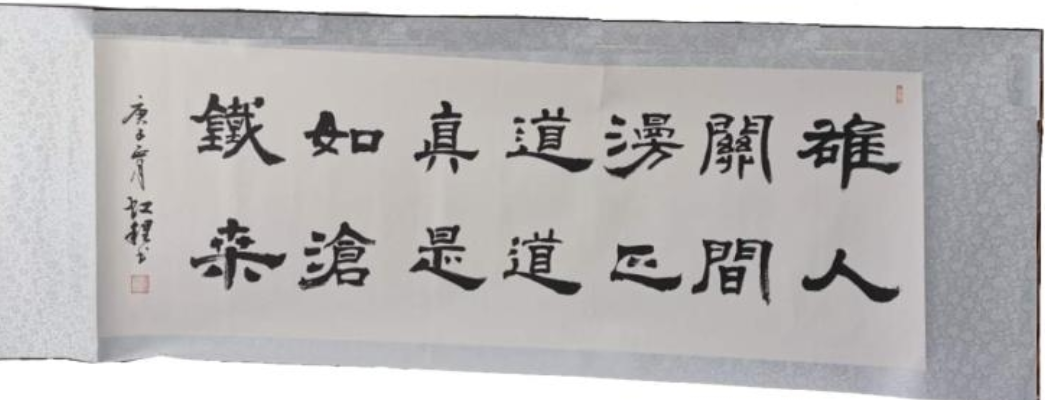 雄關漫道真如鐵
人間正道是滄桑
庚子